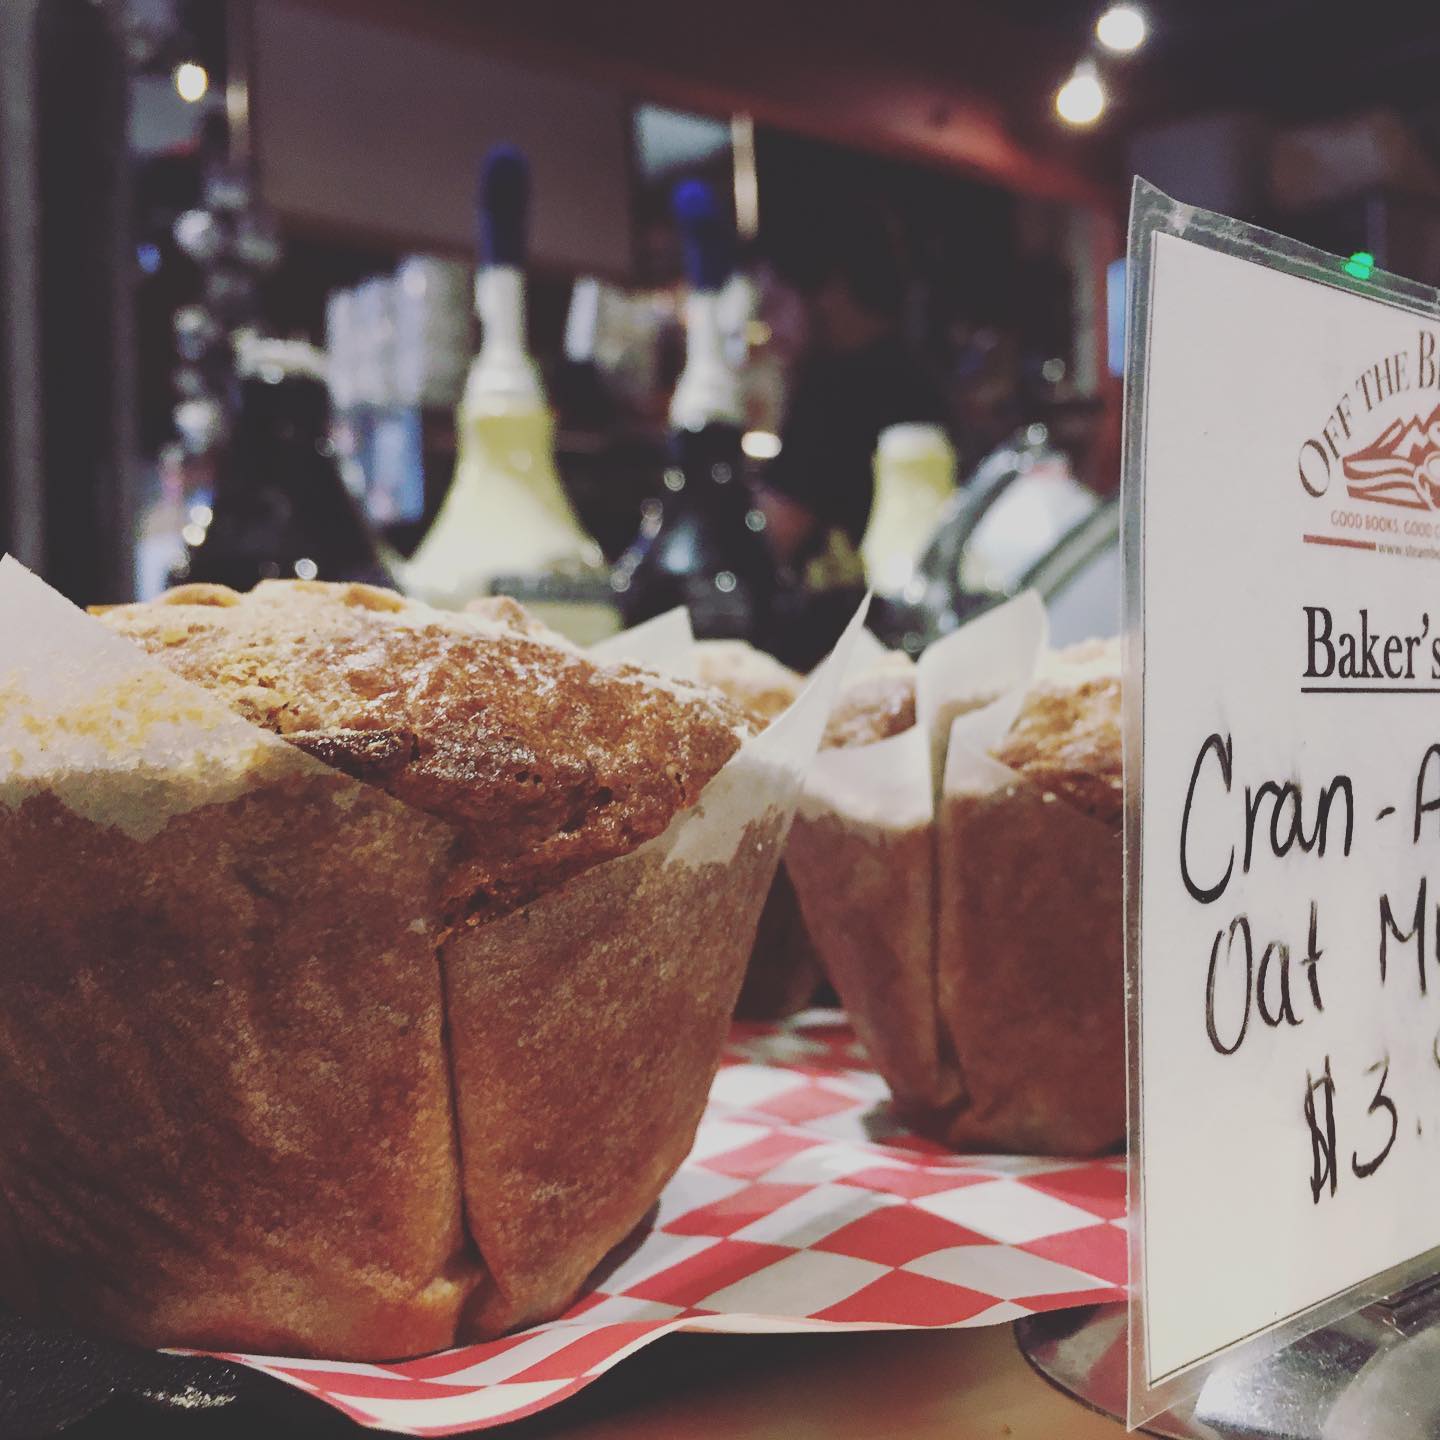 OFF THE B
GOOD BOOKS. GOOD C
www.steambo
Baker's
Cran - A
Oat Mu
$3.